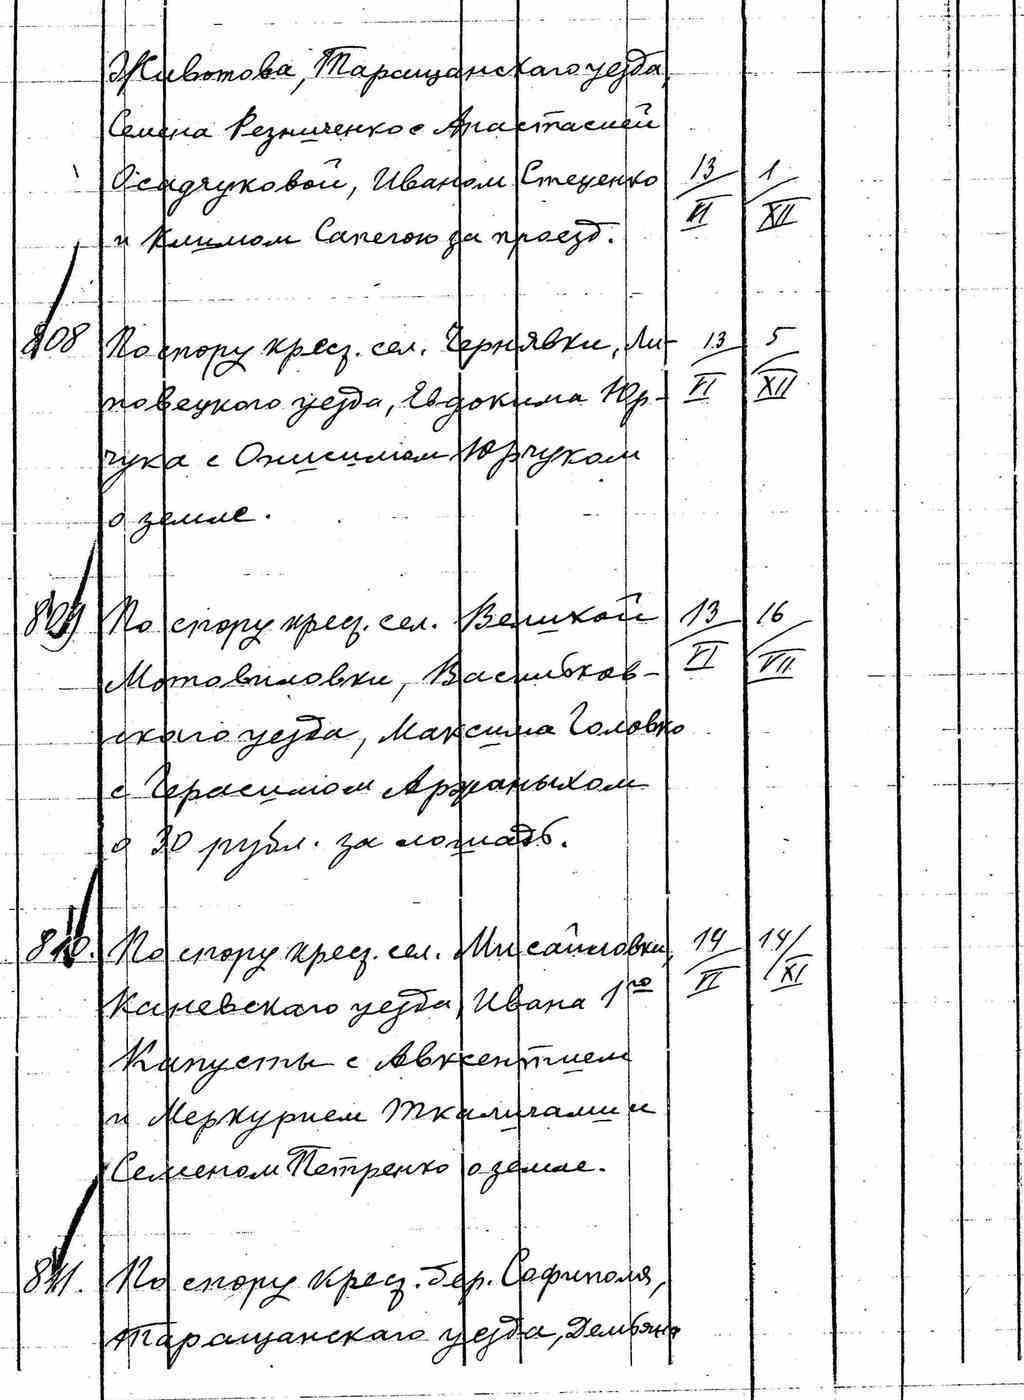 Животова, Таращанскаго уезда,
Семена Резниченко с Анастасией
Осадчуковой, Иваном Стеценко 13/VI 1/XII
и Климом Сапегою за проезд.
808 По спору кресз. сел. Чернявки, Ли- 13/VI 5/XII
повецкого уезда, Евдокима Юр-
чука с Онисимом Юрчуком
о земле.
809 По спору кресз. сел. Великой 13/VI 16/VII
Мотовиловки, Васильков-
скаго уезда, Максима Головко
с Герасимом Арфаныхом
о 30 рубл. за лошадь.
810. По спору кресз. сел. Мисайловки, 14/VI 14/XI
Каневскаго уезда, Ивана 1го
Капусты с Авксентием
и Меркурием Ткаличами и
Семеном Петренко о земле.
811. По спору кресз. дер. Софиполя,
Таращанскаго уезда, Демьяна